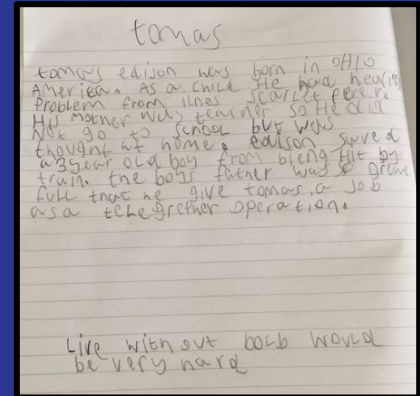 tomas
tomas edison was born in OHIO
America. As a chile He had hearing
Problem from ilnes scarlet fever.
His mother was teacher so He did
Not go to school but was
thought at home. edison saved
a 3 year old boy from bieng Hit by
train. the boys father was so greate
full that he give tomas a job
as a telegrether operation.
Live without bolb would
be very hard